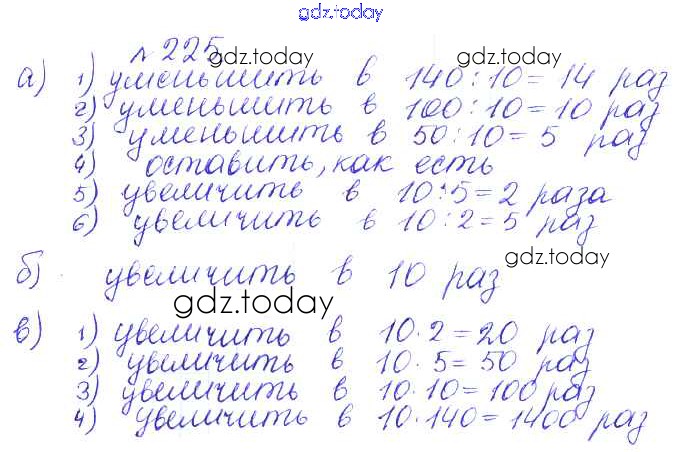 gdz.today
№ 225
gdz.today gdz.today
а) 1) уменьшить в 140 : 10 = 14 раз
2) уменьшить в 100 : 10 = 10 раз
3) уменьшить в 50 : 10 = 5 раз
4) оставить, как есть
5) увеличить в 10 : 5 = 2 раза
6) увеличить в 10 : 2 = 5 раз
gdz.today
б) увеличить в 10 раз
gdz.today
в) 1) увеличить в 10 · 2 = 20 раз
2) увеличить в 10 · 5 = 50 раз
3) увеличить в 10 · 10 = 100 раз
4) увеличить в 10 · 140 = 1400 раз
gdz.today gdz.today